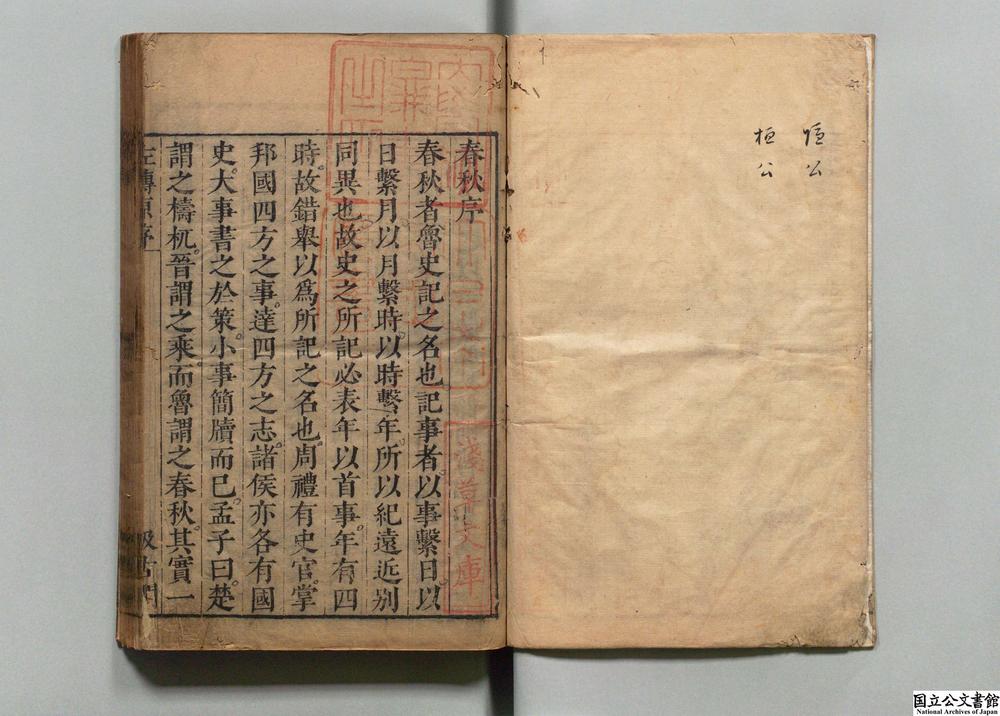 隠公
桓公
春秋序
春秋者魯史記之名也記事者以事繫日以
日繫月以月繫時以時繫年所以紀遠近别
同異也故史之所記必表年以首事年有四
時故錯舉以爲所記之名也周禮有史官掌
邦國四方之事達四方之志諸侯亦各有國
史大事書之於策小事簡牘而已孟子曰楚
謂之檮杌晉謂之乘而魯謂之春秋其實一
左傳原序
淺草文庫
国立公文書館
National Archives of Japan